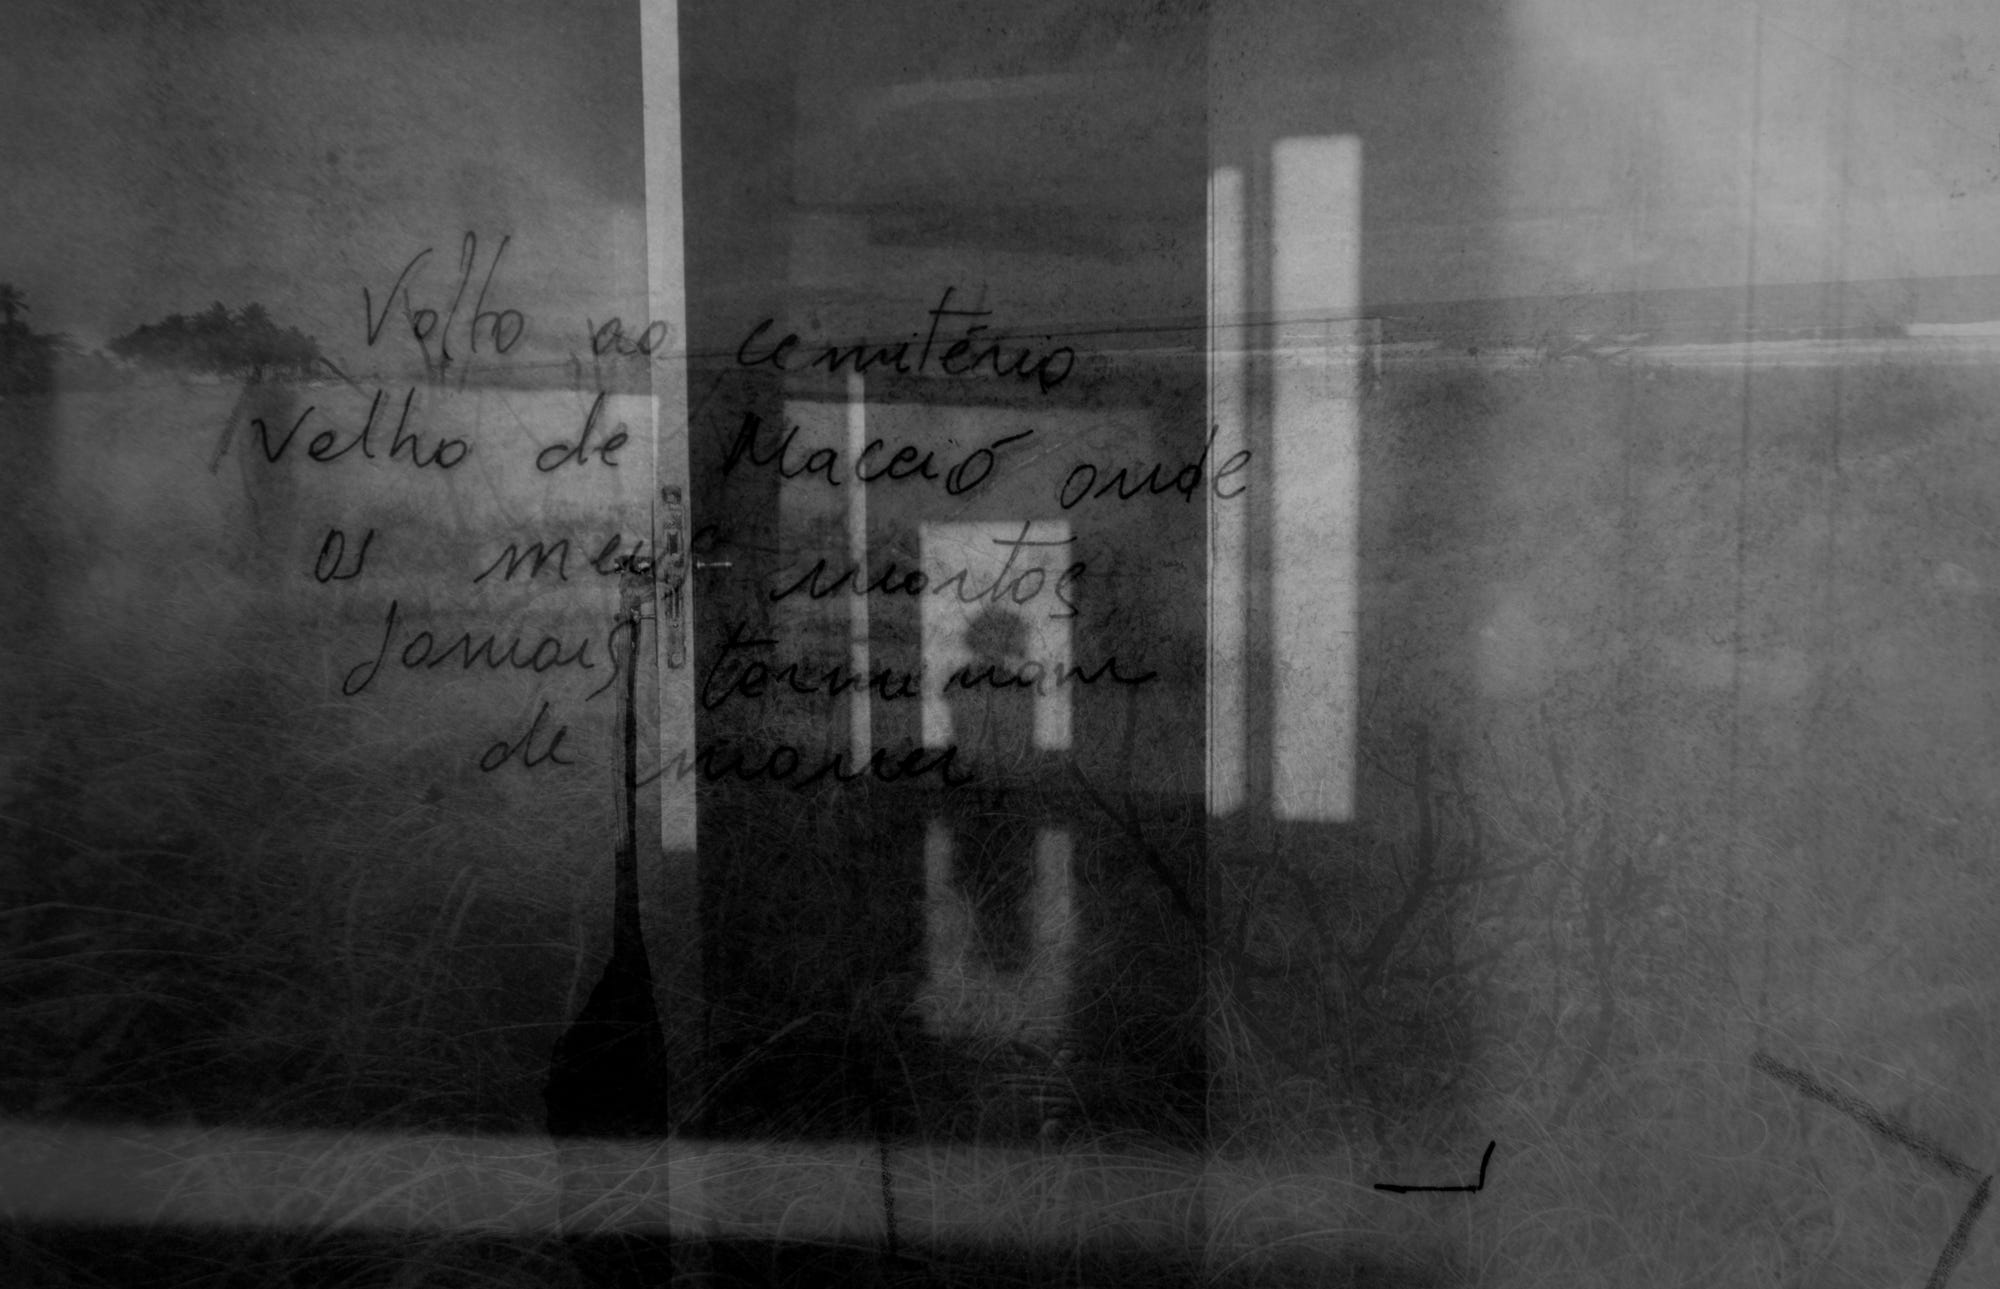 Volto ao cemitério
velho de Maceió onde
os meus mortos
jamais terminam
de morrer